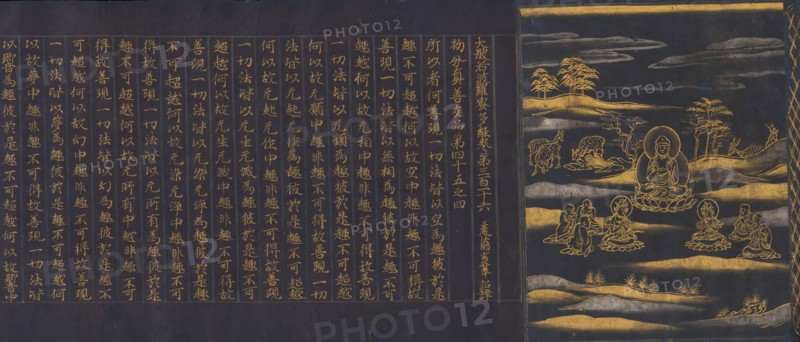 大般若波羅蜜多經卷第三百十六
初分真善友品第四十五之四
所以者何善現一切法皆以空為趣彼於是
趣不可超越何以故空中趣非趣不可得故
善現一切法皆以無相為趣彼於是趣不可
超越何以故无相中趣非趣不可得故善現
一切法皆以无願為趣彼於是趣不可超越
何以故无願中趣非趣不可得故善現一切
法皆以无起无作為趣彼於是趣不可超越
何以故无起无作中趣非趣不可得故善現
一切法皆以无生无滅為趣彼於是趣不可
超越何以故无生无滅中趣非趣不可得故
善現一切法皆以无染无淨為趣彼於是趣
不可超越何以故无染无淨中趣非趣不可
得故善現一切法皆以无所有為趣彼於是
趣不可超越何以故无所有中趣非趣不可
得故善現一切法皆以幻為趣彼於是趣不
可超越何以故幻中趣非趣不可得故善現
一切法皆以夢為趣彼於是趣不可超越何
以故夢中趣非趣不可得故善現一切法皆
以響為趣彼於是趣不可超越何以故響中
PHOTO12